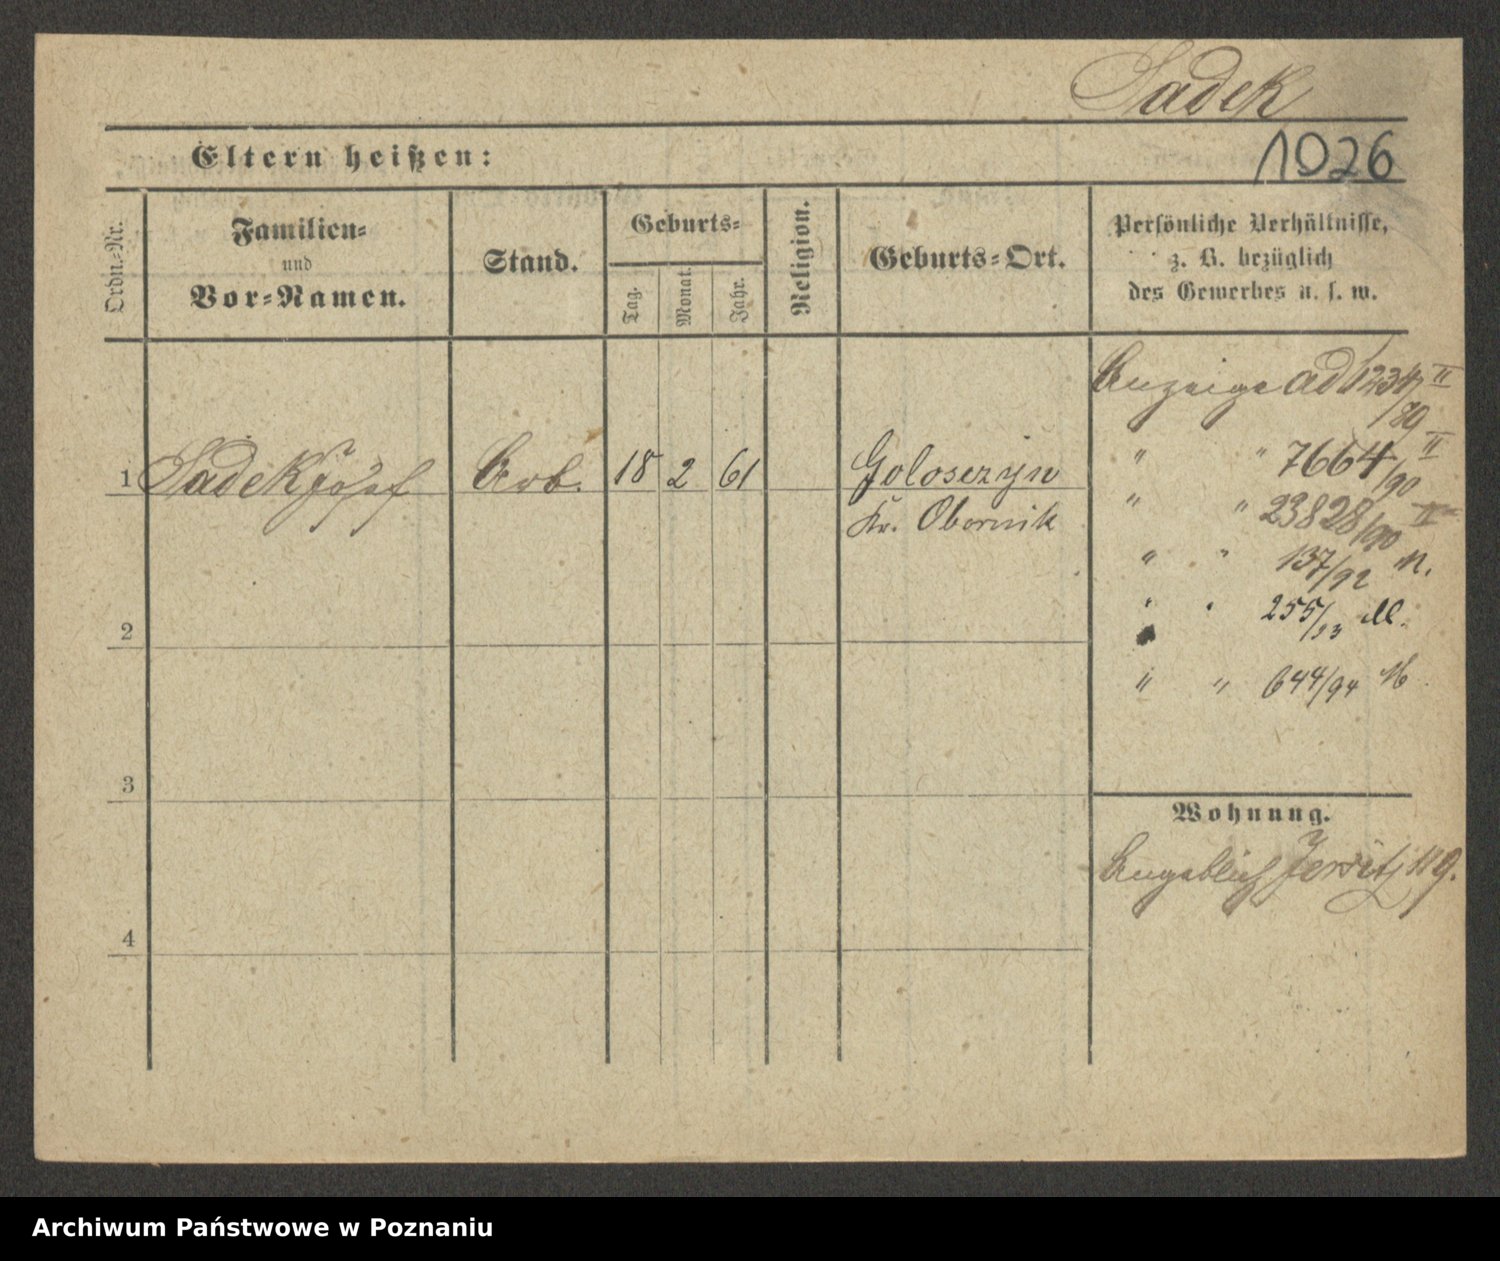 Sadek
1026
Eltern heißen:
Ordn.-Nr.
Familien-
und
Vor-Namen.
Stand.
Geburts-
Tag.
Monat.
Jahr.
Religion.
Geburts-Ort.
Persönliche Verhältnisse,
z. B. bezüglich
des Gewerbes u. s. w.
Anzeige ad 1234/89 II
" " 7664/90 II
1 Sadek Josef Arb. 18 2 61 Goloseczyn
Kr. Obornik
" " 23828/90 II
" " 137/92 M.
" " 255/93 M.
2
" " 644/94 M
3
Wohnung.
Angeblich Jersitz 119.
4
Archiwum Państwowe w Poznaniu